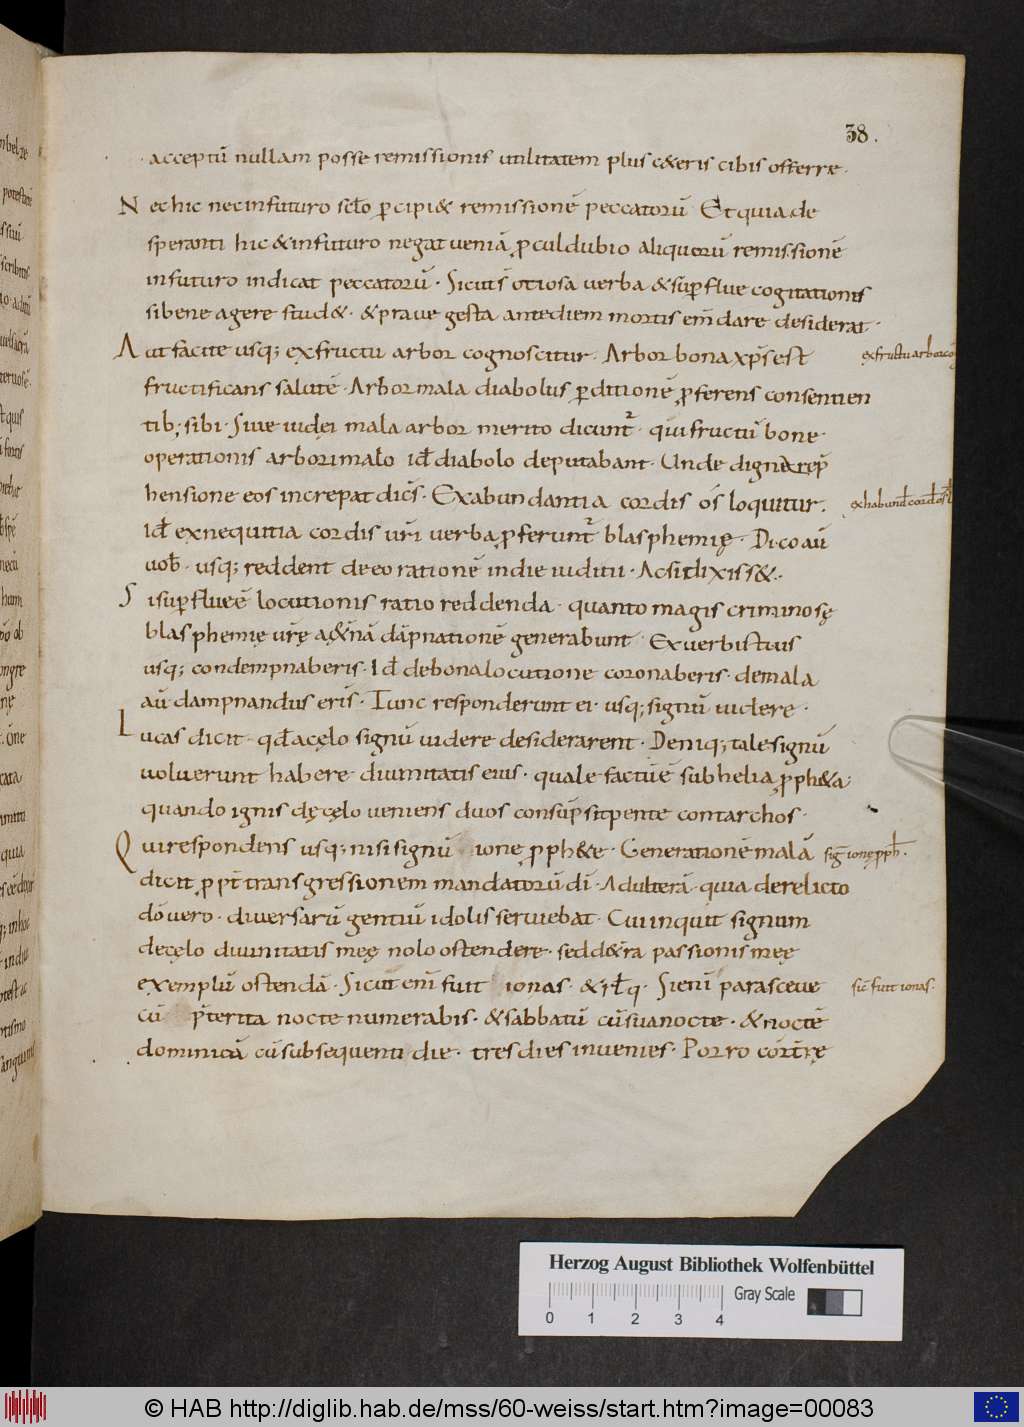 38.
acceptū nullam posse remissionis utilitatem plus c&eris cibis offerre.
Nec hic nec infuturo scło ꝑcipi& remissionē peccatorū Et quia de
speranti hic & infuturo negat veniā ꝓculdubio aliquorū remissionē
infuturo indicat peccatorū. Sicut ē otiosa verba & suꝑflue cogitationis
si bene agere stud&. & prave gesta ante diem mortis em̄dare desiderat.
Aut facite usq; ex fructu arbor cognoscitur. Arbor bona xp̄s est
ex fructu arbor cog
fructificans salutē. Arbor mala diabolus ꝑditionē ꝓferens consentien
tib; sibi. Sive iudęi mala arbor merito dicunt᷑. qui fructū bone
operationis arbori malo id̄ diabolo deputabant. Unde digne rep̄
hensione eos increpat dicēs. Ex abundantia cordis os loquitur.
ex habund̄ cord̄ os ł
id̄ ex nequitia cordis ur̄i verba ꝓferunt᷑ blasphemię. Dico aū
vob̄. usq; reddent de eo rationē in die iuditii. Ac si dixiss&.
Si suꝑflueē locutionis ratio reddenda. quanto magis criminosę
blasphemię ur̄ę a&n̄ā dāpnationē generabunt. Ex verbis tuis
usq; condempnaberis. Id̄ de bona locutione coronaberis. de mala
aū dampnandus eris. Tunc responderunt ei. usq; signū videre.
Lucas dicit. qd̄ a cęlo signū videre desiderarent. Deniq; tale signū
voluerunt habere divinitatis eius. quale factū ē sub helia ꝓph&a;
quando ignis de cęlo veniens duos consūpsit pentecontarchos.
Qui respondens usq; nisi signū ionę ꝓph&e. Generationē malā
sig̅ ionę pph̄.
dicit ꝓpt̄ transgressionem mandatorū dī. Adulterā. quia derelicto
dō vero. diversarū gentiū idolis serviebat. Cui inquit signum
de cęlo divinitatis meę nolo ostendere. sed d&̄ra passionis meę
exemplū ostendā. Sicut enī fuit ionas. & rłq. Si enī parasceve
sic̄ fuit ionas.
cū p̄terita nocte numerabis. & sabbatū cū sua nocte. & noctē
dominicā cū subsequenti die. tres dies invenies. Porro cor t̄rę
Herzog August Bibliothek Wolfenbüttel
Gray Scale
0 1 2 3 4
© HAB http://diglib.hab.de/mss/60-weiss/start.htm?image=00083